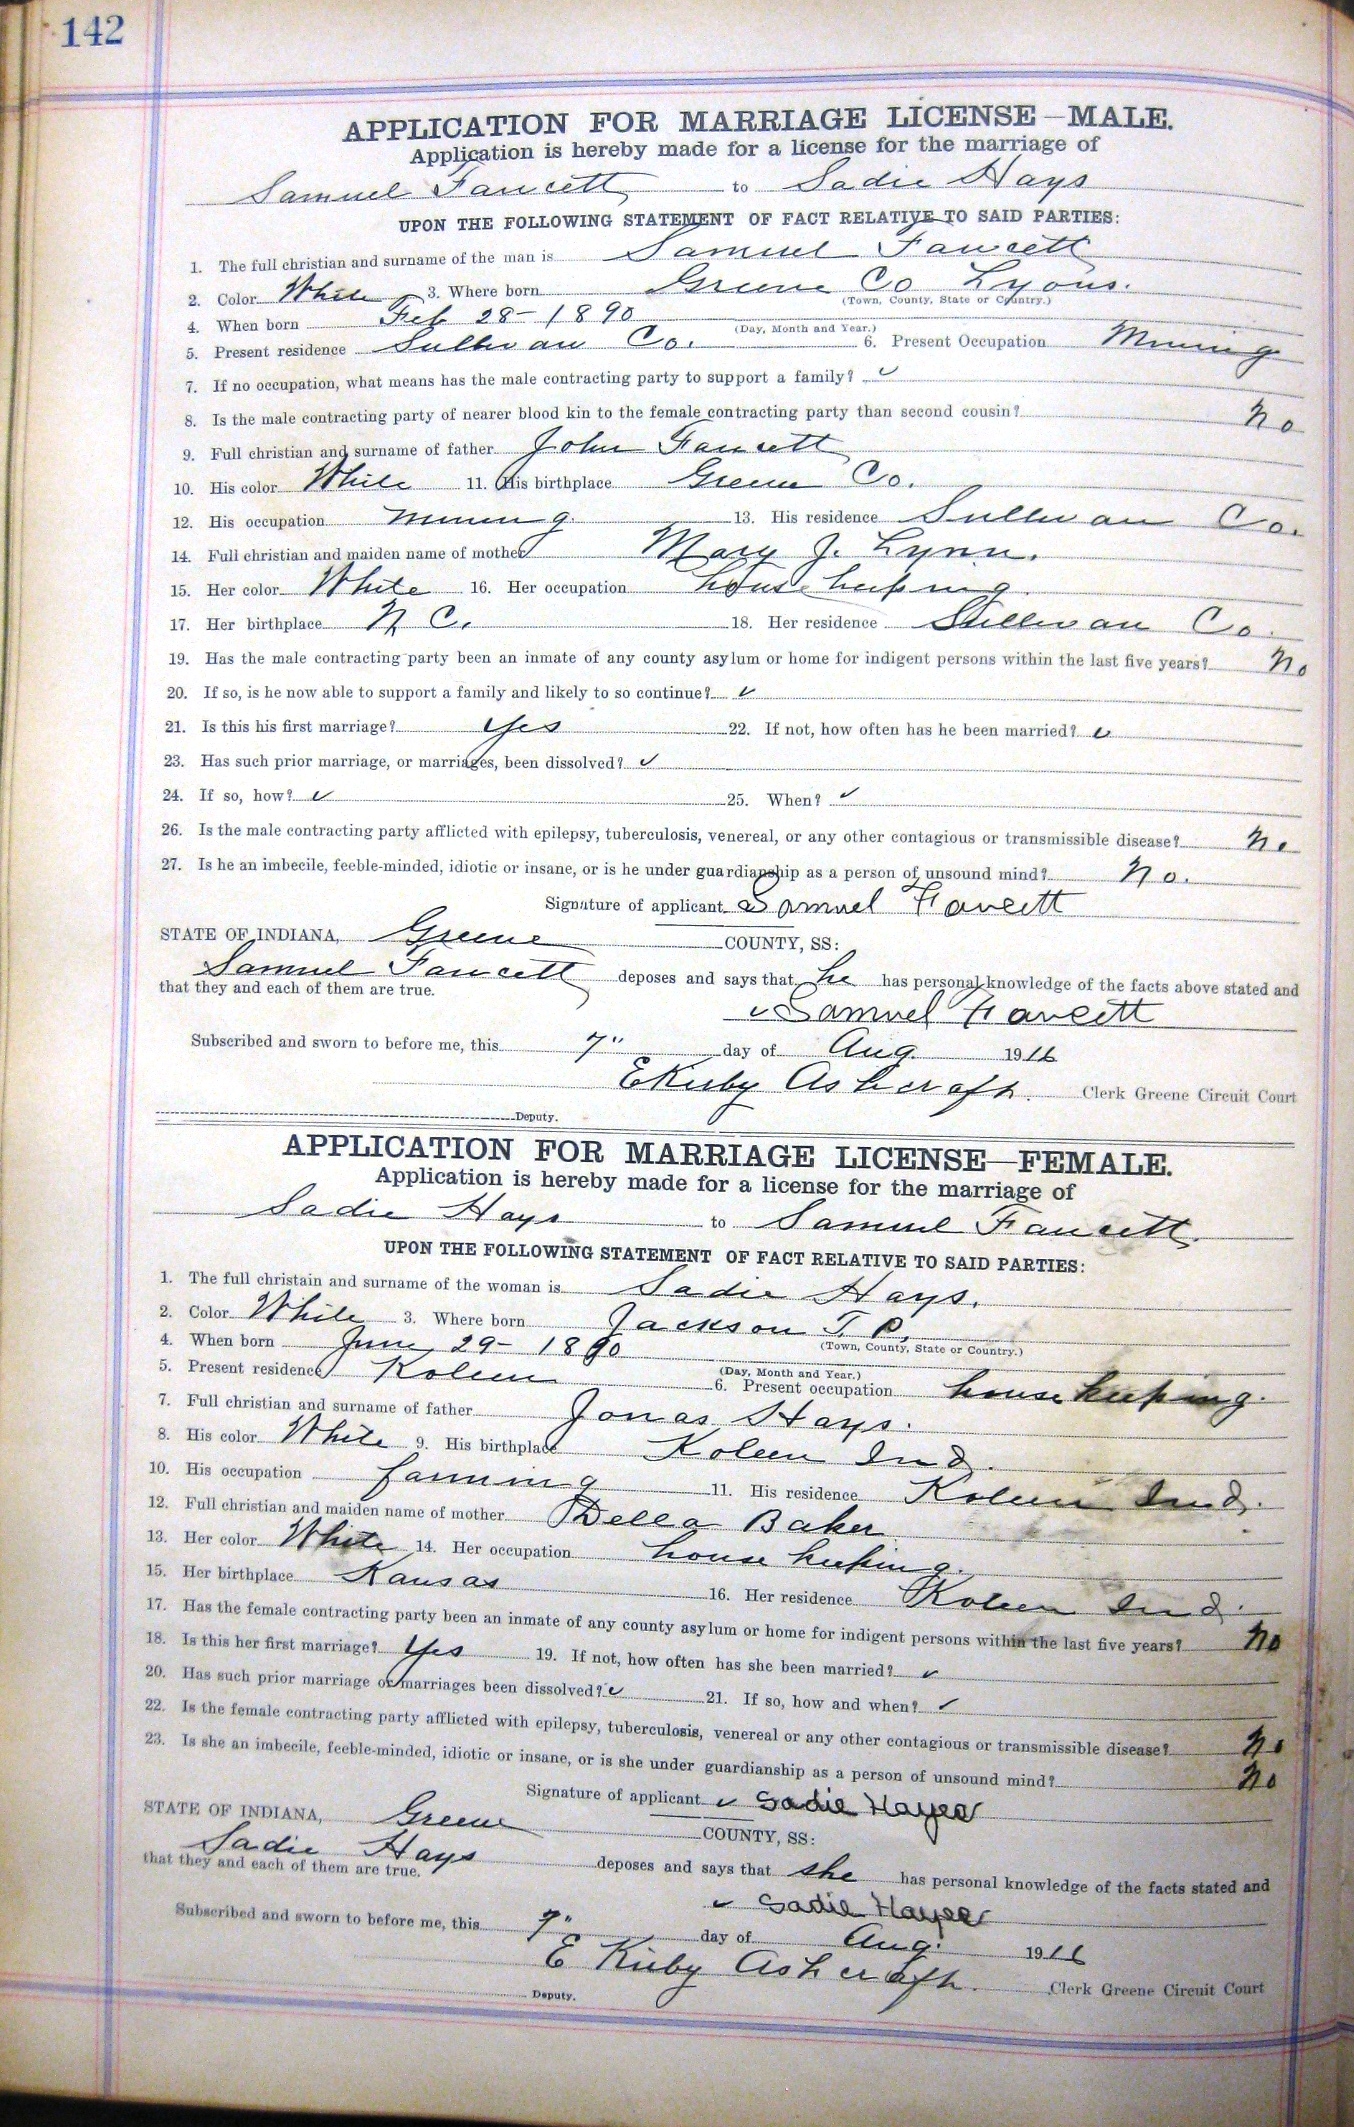 142
APPLICATION FOR MARRIAGE LICENSE—MALE.
Application is hereby made for a license for the marriage of
Samuel Fawcett to Sadie Hays
UPON THE FOLLOWING STATEMENT OF FACT RELATIVE TO SAID PARTIES:
1. The full christian and surname of the man is Samuel Fawcett
2. Color White 3. Where born Greene Co Lyons.
(Town, County, State or Country.)
4. When born Feb 28- 1890
(Day, Month and Year.)
5. Present residence Sullivan Co. 6. Present Occupation Mining
7. If no occupation, what means has the male contracting party to support a family? ✓
8. Is the male contracting party of nearer blood kin to the female contracting party than second cousin? no
9. Full christian and surname of father John Fawcett
10. His color White 11. His birthplace Greene Co.
12. His occupation mining 13. His residence Sullivan Co.
14. Full christian and maiden name of mother Mary J. Lynn.
15. Her color White 16. Her occupation house keeping
17. Her birthplace N C. 18. Her residence Sullivan Co.
19. Has the male contracting party been an inmate of any county asylum or home for indigent persons within the last five years? No
20. If so, is he now able to support a family and likely to so continue? ✓
21. Is this his first marriage? Yes 22. If not, how often has he been married? ✓
23. Has such prior marriage, or marriages, been dissolved? ✓
24. If so, how? ✓ 25. When? ✓
26. Is the male contracting party afflicted with epilepsy, tuberculosis, venereal, or any other contagious or transmissible disease? no
27. Is he an imbecile, feeble-minded, idiotic or insane, or is he under guardianship as a person of unsound mind? No.
Signature of applicant Samuel Fawcett
STATE OF INDIANA, Greene COUNTY, SS:
Samuel Fawcett deposes and says that he has personal knowledge of the facts above stated and
that they and each of them are true.
✓ Samuel Fawcett
Subscribed and sworn to before me, this 7" day of Aug. 1916
E Kirby Ashcraft. Clerk Greene Circuit Court
Deputy.
APPLICATION FOR MARRIAGE LICENSE—FEMALE.
Application is hereby made for a license for the marriage of
Sadie Hays to Samuel Fawcett.
UPON THE FOLLOWING STATEMENT OF FACT RELATIVE TO SAID PARTIES:
1. The full christain and surname of the woman is Sadie Hays.
2. Color White 3. Where born Jackson T. P.
(Town, County, State or Country.)
4. When born June 29- 1890
(Day, Month and Year.)
5. Present residence Koleen 6. Present occupation house keeping.
7. Full christian and surname of father Jonas Hays.
8. His color White 9. His birthplace Koleen Ind.
10. His occupation farming 11. His residence Koleen Ind.
12. Full christian and maiden name of mother Della Baker
13. Her color White 14. Her occupation house keeping.
15. Her birthplace Kansas 16. Her residence Koleen Ind.
17. Has the female contracting party been an inmate of any county asylum or home for indigent persons within the last five years? No
18. Is this her first marriage? Yes 19. If not, how often has she been married? ✓
20. Has such prior marriage or marriages been dissolved? ✓ 21. If so, how and when? ✓
22. Is the female contracting party afflicted with epilepsy, tuberculosis, venereal or any other contagious or transmissible disease? No
23. Is she an imbecile, feeble-minded, idiotic or insane, or is she under guardianship as a person of unsound mind? No
Signature of applicant ✓ Sadie Hayes
STATE OF INDIANA, Greene COUNTY, SS:
Sadie Hays deposes and says that she has personal knowledge of the facts stated and
that they and each of them are true.
✓ Sadie Hayes
Subscribed and sworn to before me, this 7" day of Aug. 1916
E Kirby Ashcraft. Clerk Greene Circuit Court
Deputy.